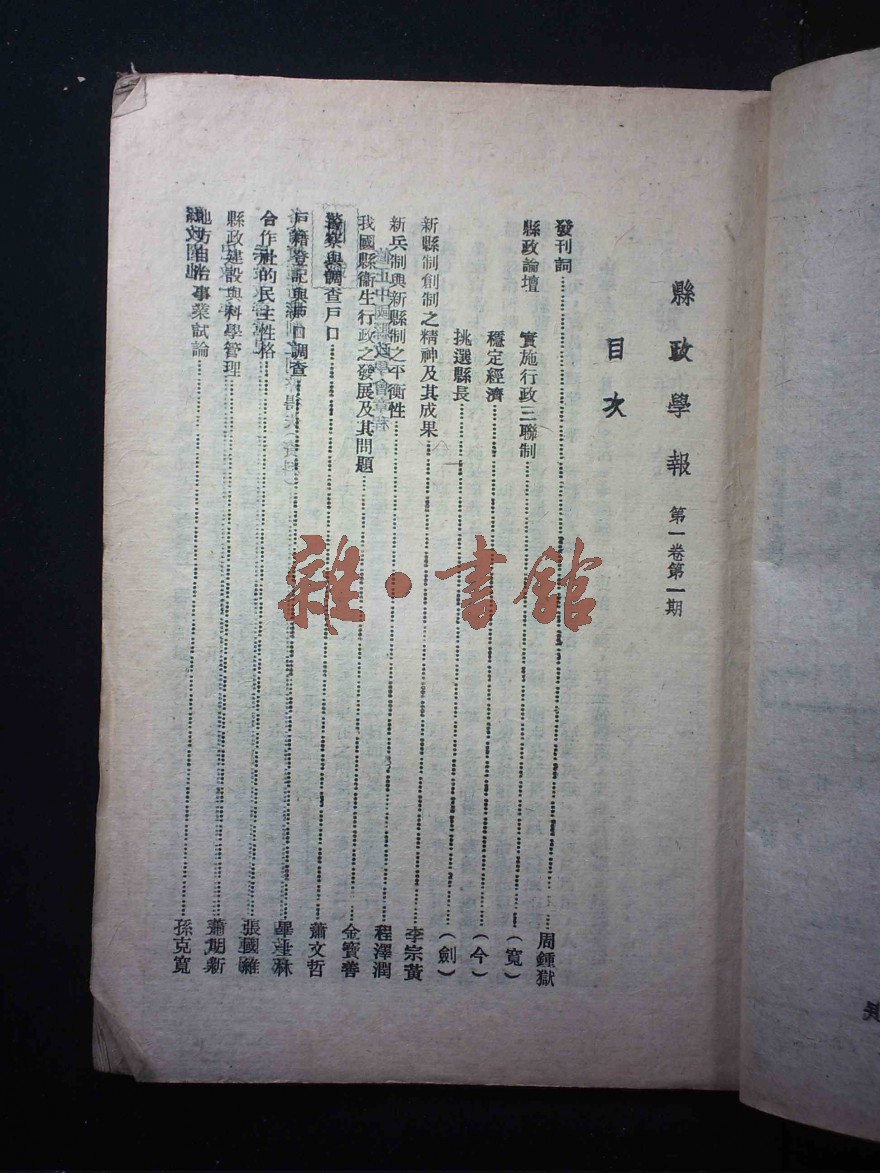 縣政學報 第一卷第一期
目次
發刊詞……周鍾獄
縣政論壇 實施行政三聯制……(寬)
穩定經濟……(今)
挑選縣長……(劍)
新縣制創制之精神及其成果……李宗黃
新兵制與新縣制之平衡性……程澤潤
我國縣衛生行政之發展及其問題……金寶善
警察與調查戶口……蕭文哲
戶籍登記與戶口調查……畢
合作社的民主性格……張國維
縣政建設與科學管理……蕭明新
地方自治事業試論……孫克寬
雜·書館